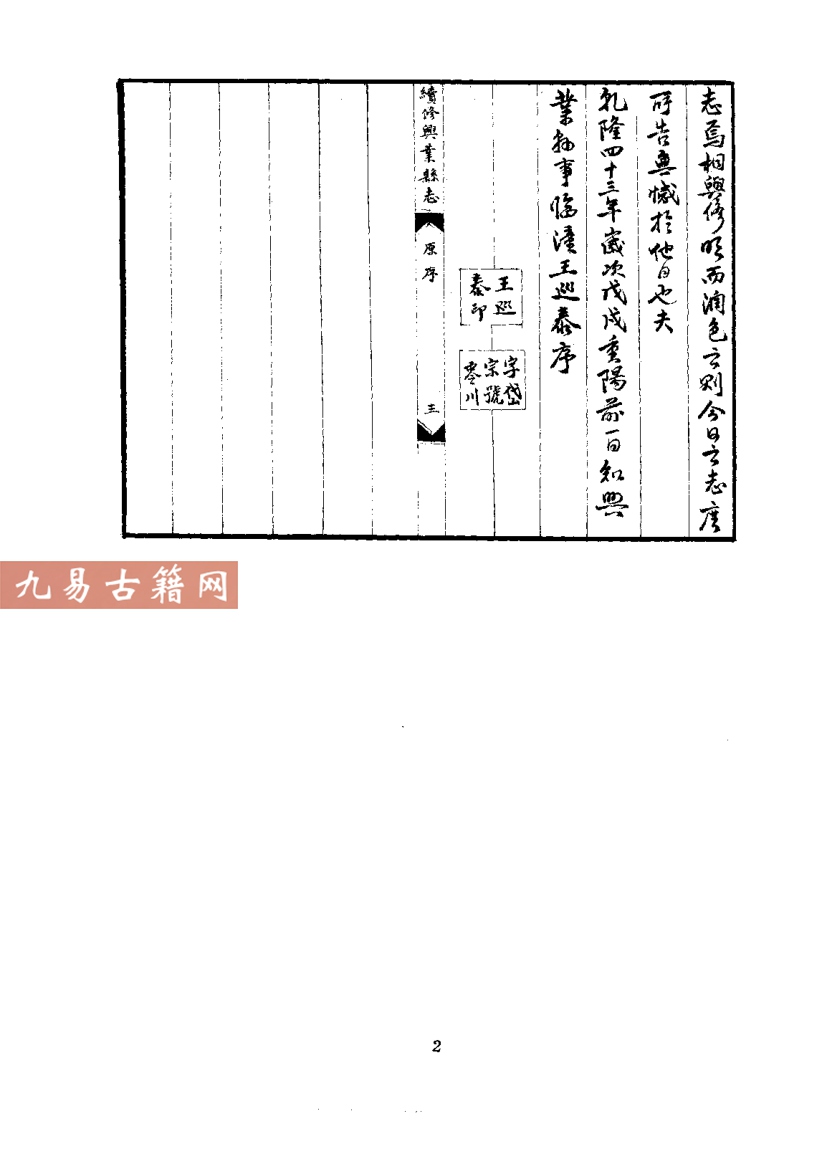 志焉相與修明而潤色之則今日之志庶
可告無憾於他日也夫
乾隆四十三年歲次戊戌重陽前一日知興
業縣事臨潼王巡泰序
王巡
泰印
字岱
宗號
零川
續修興業縣志
原序
三
九易古籍网
2